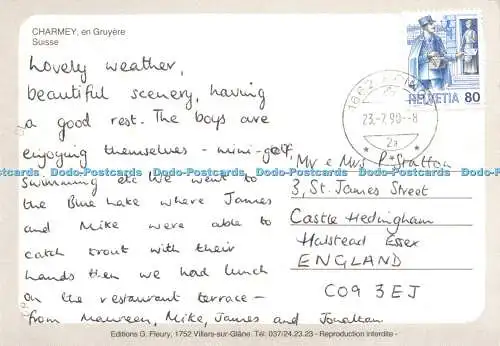 CHARMEY, en Gruyère
Suisse
Lovely weather,
beautiful scenery, having
a good rest. The boys are
enjoying themselves - mini-golf,
swimming etc We went to
the Blue Lake where James
and Mike were able to
catch trout with their
hands then we had lunch
on the restaurant terrace -
from Maureen, Mike, James and Jonathan.
HELVETIA 80
1662
23.-7.90.-8
2a
Mr e Mrs P. Stratton
3, St. James Street
Castle Hedingham
Halstead Essex
ENGLAND
CO9 3EJ
Postcards Odd-Postcards Odd-Postcards Odd-Postcards
Editions G. Fleury, 1752 Villars-sur-Glâne. Tél. 037/24.23.23 - Reproduction interdite -